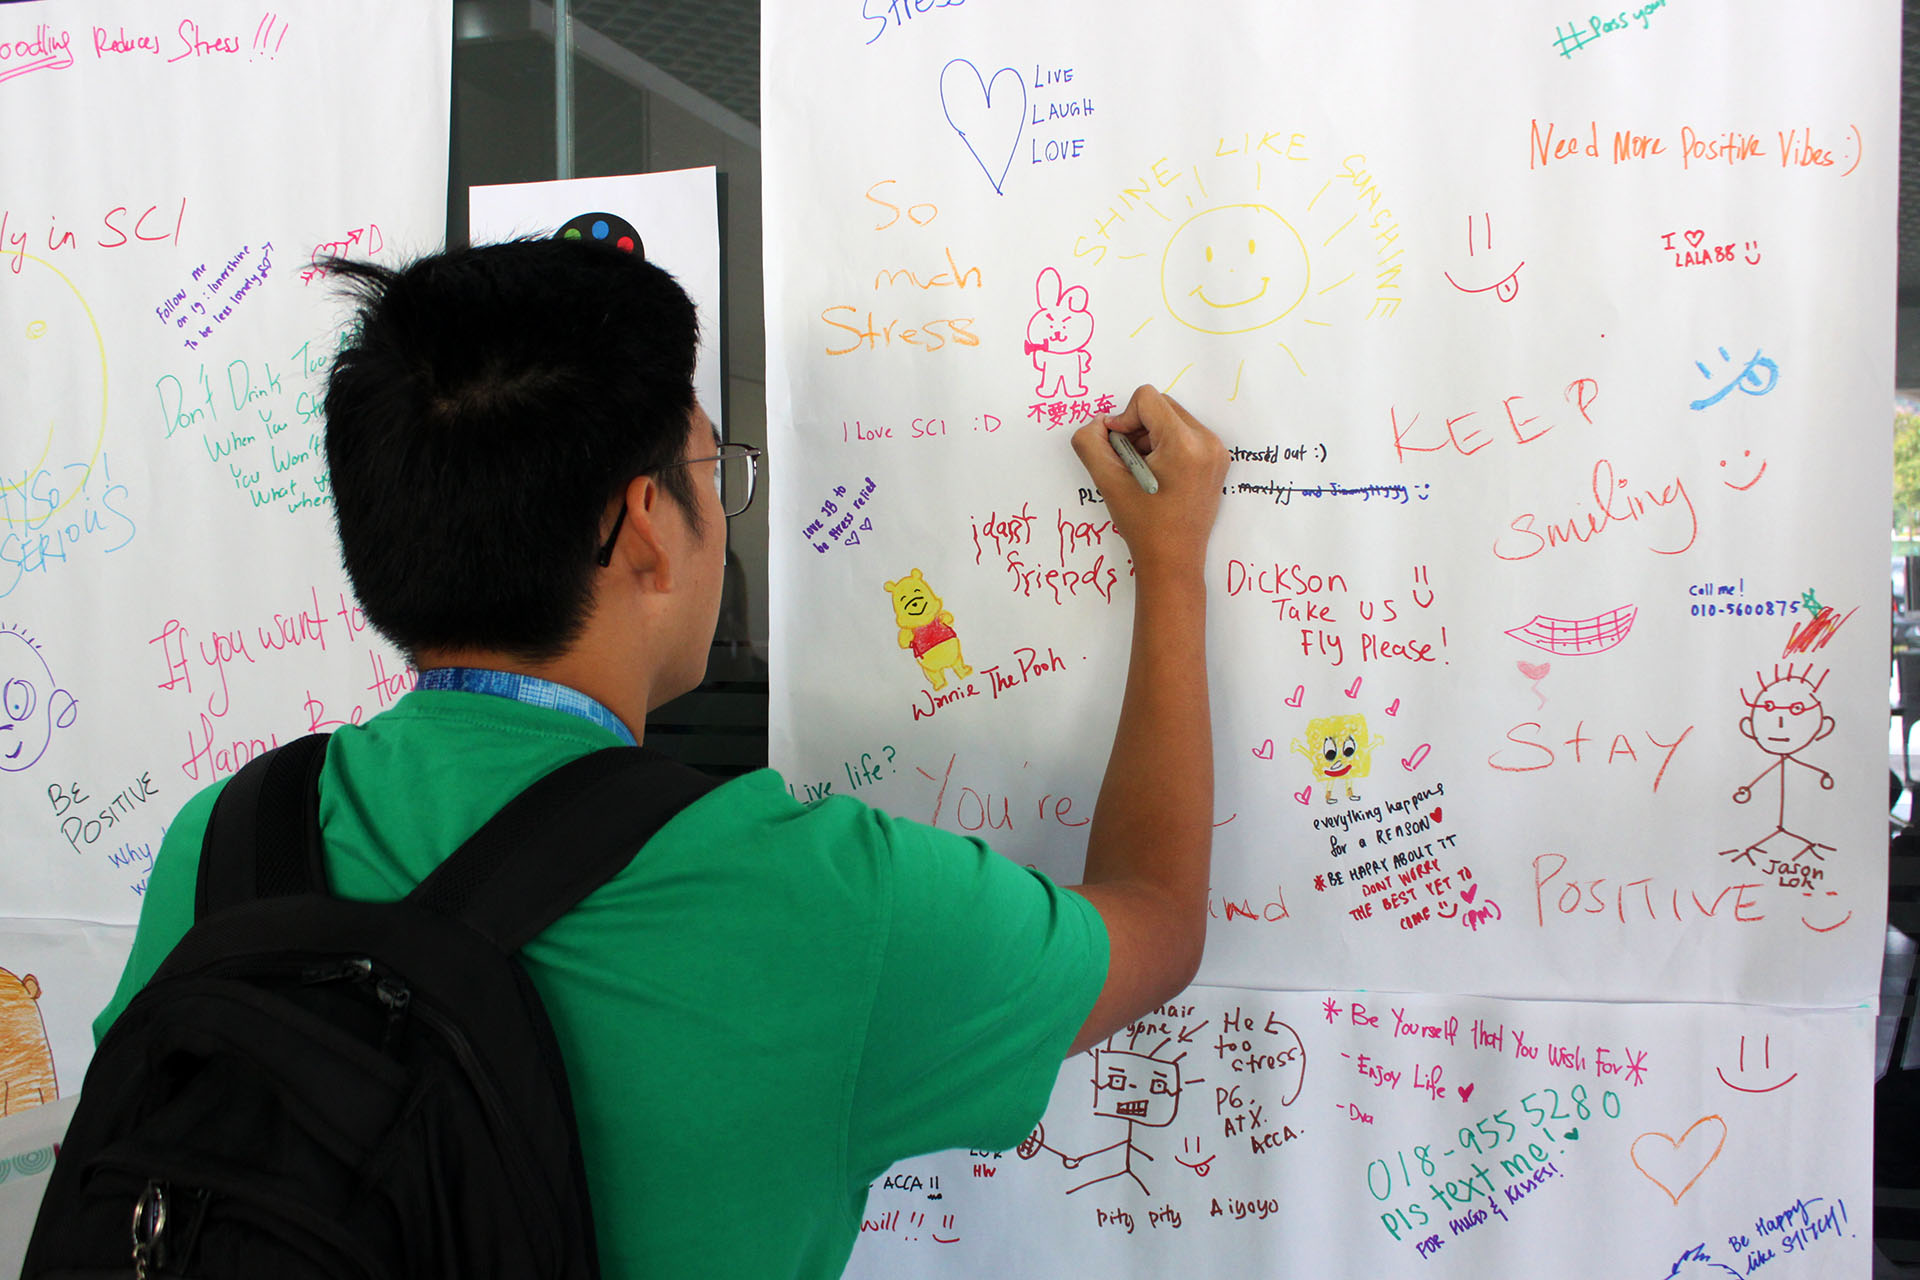 Reduces Stress!!!
in SCI
Follow me
on ig: lonershine
to be less lonely
Don't Drink Too
When You
You Won't
What
when
SERIOUS
If you want to
Be
Happy
BE
POSITIVE
Why
LIVE
LAUGH
LOVE
#Pass your
Need More Positive Vibes:)
So
much
Stress
SHINE LIKE SUNSHINE
I ♡
LALA88
不要放弃
I Love SCI :D
stressed out :)
KEEP
Smiling
Love JB to
be stress relief
friends
Winnie The Pooh.
DICKSON
Take us
Fly Please!
Call me!
010-5600875
STAY
POSITIVE
Live life?
You're
everything happens
for a REASON
*BE HAPPY ABOUT IT
DONT WORRY
THE BEST YET TO
COME
(PM)
Jason
Loh
hair
He
too
stress.
P6.
ATX.
ACCA.
HW
ACCA
will!!
pity pity Aiyoyo
*Be Yourself that You Wish For*
-Enjoy Life
018-9555280
pls text me!
FOR HUGS & KISSES!
Be Happy
like STITCH!